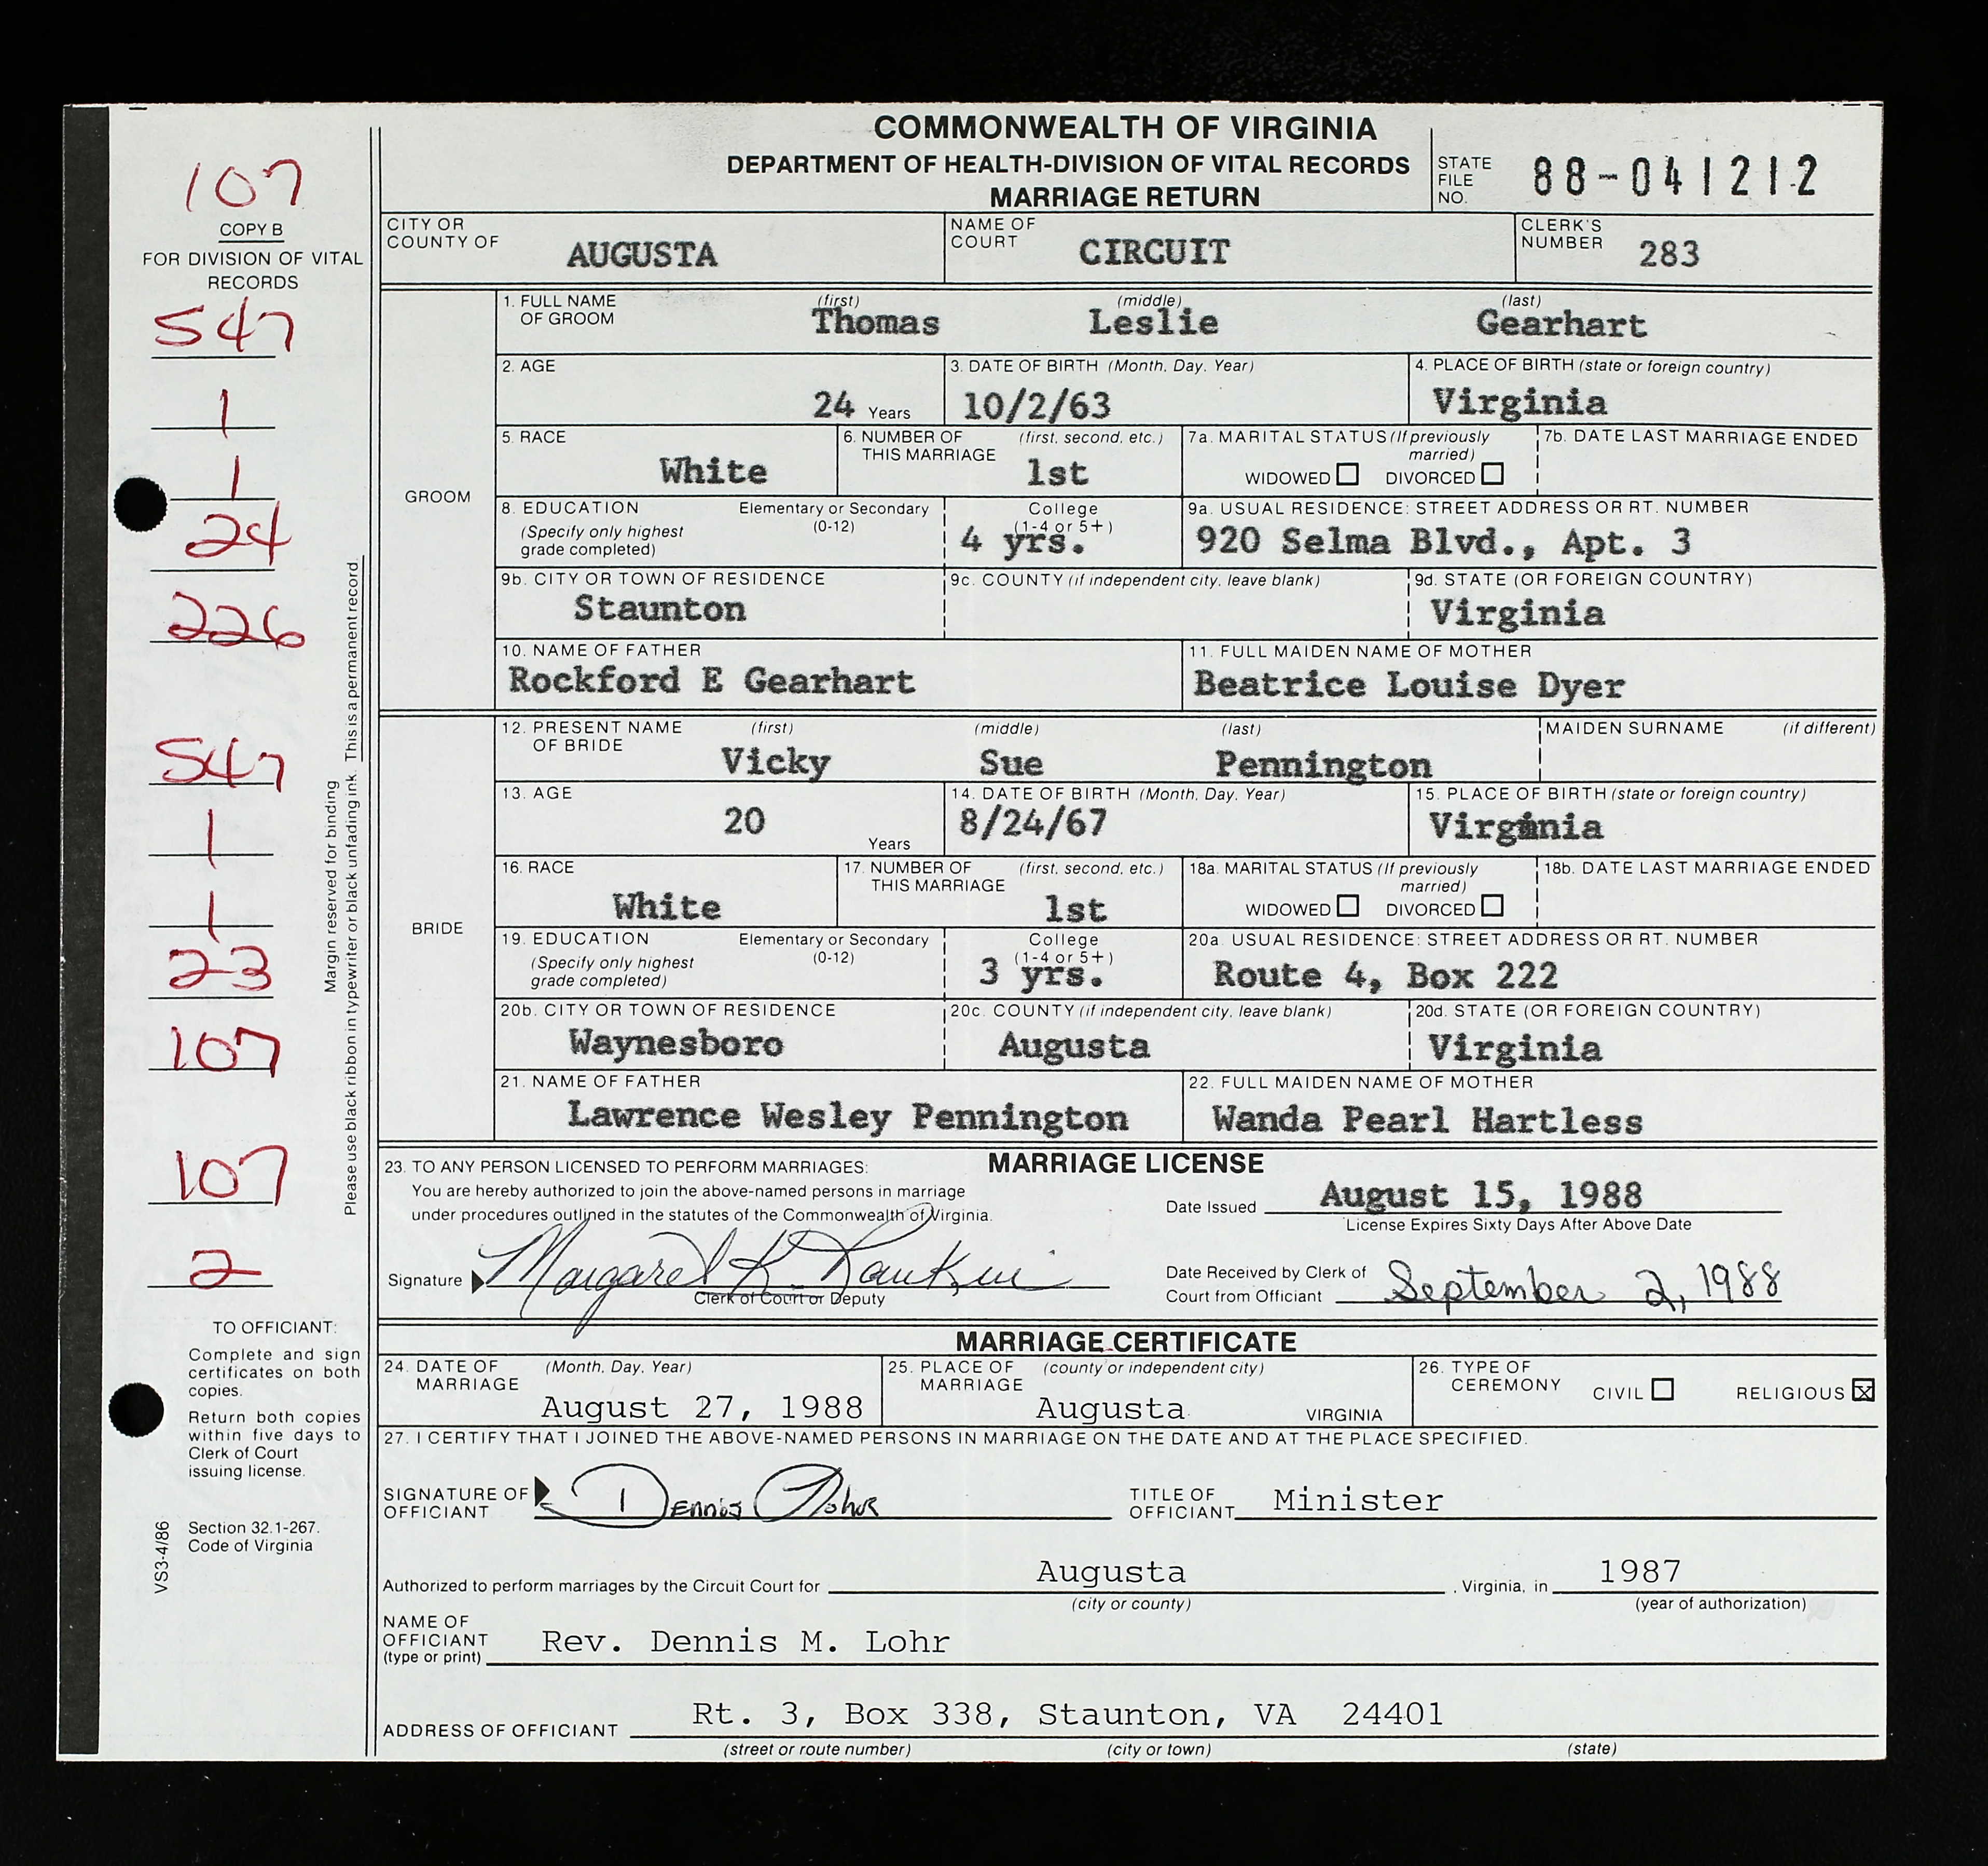 COMMONWEALTH OF VIRGINIA
DEPARTMENT OF HEALTH-DIVISION OF VITAL RECORDS
MARRIAGE RETURN
STATE FILE NO. 88-041212
107
COPY B
FOR DIVISION OF VITAL
RECORDS
547
1
1
24
226
547
1
1
23
107
107
2
Margin reserved for binding
Please use black ribbon in typewriter or black unfading ink. This is a permanent record.
TO OFFICIANT:
Complete and sign
certificates on both
copies.
Return both copies
within five days to
Clerk of Court
issuing license.
Section 32.1-267.
Code of Virginia
VS3-4/86
CITY OR COUNTY OF AUGUSTA NAME OF COURT CIRCUIT CLERK'S NUMBER 283
GROOM
1. FULL NAME OF GROOM (first) Thomas (middle) Leslie (last) Gearhart
2. AGE 24 Years 3. DATE OF BIRTH (Month, Day, Year) 10/2/63 4. PLACE OF BIRTH (state or foreign country) Virginia
5. RACE White 6. NUMBER OF THIS MARRIAGE (first, second, etc.) 1st 7a. MARITAL STATUS (If previously married) WIDOWED ☐ DIVORCED ☐ 7b. DATE LAST MARRIAGE ENDED
8. EDUCATION (Specify only highest grade completed) Elementary or Secondary (0-12) College (1-4 or 5+) 4 yrs. 9a. USUAL RESIDENCE: STREET ADDRESS OR RT. NUMBER 920 Selma Blvd., Apt. 3
9b. CITY OR TOWN OF RESIDENCE Staunton 9c. COUNTY (if independent city, leave blank) 9d. STATE (OR FOREIGN COUNTRY) Virginia
10. NAME OF FATHER Rockford E Gearhart 11. FULL MAIDEN NAME OF MOTHER Beatrice Louise Dyer
BRIDE
12. PRESENT NAME OF BRIDE (first) Vicky (middle) Sue (last) Pennington MAIDEN SURNAME (if different)
13. AGE 20 Years 14. DATE OF BIRTH (Month, Day, Year) 8/24/67 15. PLACE OF BIRTH (state or foreign country) Virginia
16. RACE White 17. NUMBER OF THIS MARRIAGE (first, second, etc.) 1st 18a. MARITAL STATUS (If previously married) WIDOWED ☐ DIVORCED ☐ 18b. DATE LAST MARRIAGE ENDED
19. EDUCATION (Specify only highest grade completed) Elementary or Secondary (0-12) College (1-4 or 5+) 3 yrs. 20a. USUAL RESIDENCE: STREET ADDRESS OR RT. NUMBER Route 4, Box 222
20b. CITY OR TOWN OF RESIDENCE Waynesboro 20c. COUNTY (if independent city, leave blank) Augusta 20d. STATE (OR FOREIGN COUNTRY) Virginia
21. NAME OF FATHER Lawrence Wesley Pennington 22. FULL MAIDEN NAME OF MOTHER Wanda Pearl Hartless
MARRIAGE LICENSE
23. TO ANY PERSON LICENSED TO PERFORM MARRIAGES:
You are hereby authorized to join the above-named persons in marriage
under procedures outlined in the statutes of the Commonwealth of Virginia.
Date Issued August 15, 1988
License Expires Sixty Days After Above Date
Signature Margaret K.
Clerk of Court or Deputy
Date Received by Clerk of Court from Officiant September 2, 1988
MARRIAGE CERTIFICATE
24. DATE OF MARRIAGE (Month, Day, Year) August 27, 1988 25. PLACE OF MARRIAGE (county or independent city) Augusta VIRGINIA 26. TYPE OF CEREMONY CIVIL ☐ RELIGIOUS ☒
27. I CERTIFY THAT I JOINED THE ABOVE-NAMED PERSONS IN MARRIAGE ON THE DATE AND AT THE PLACE SPECIFIED.
SIGNATURE OF OFFICIANT Dennis Lohr TITLE OF OFFICIANT Minister
Authorized to perform marriages by the Circuit Court for Augusta, Virginia, in 1987
(city or county) (year of authorization)
NAME OF OFFICIANT (type or print) Rev. Dennis M. Lohr
ADDRESS OF OFFICIANT Rt. 3, Box 338, Staunton, VA 24401
(street or route number) (city or town) (state)